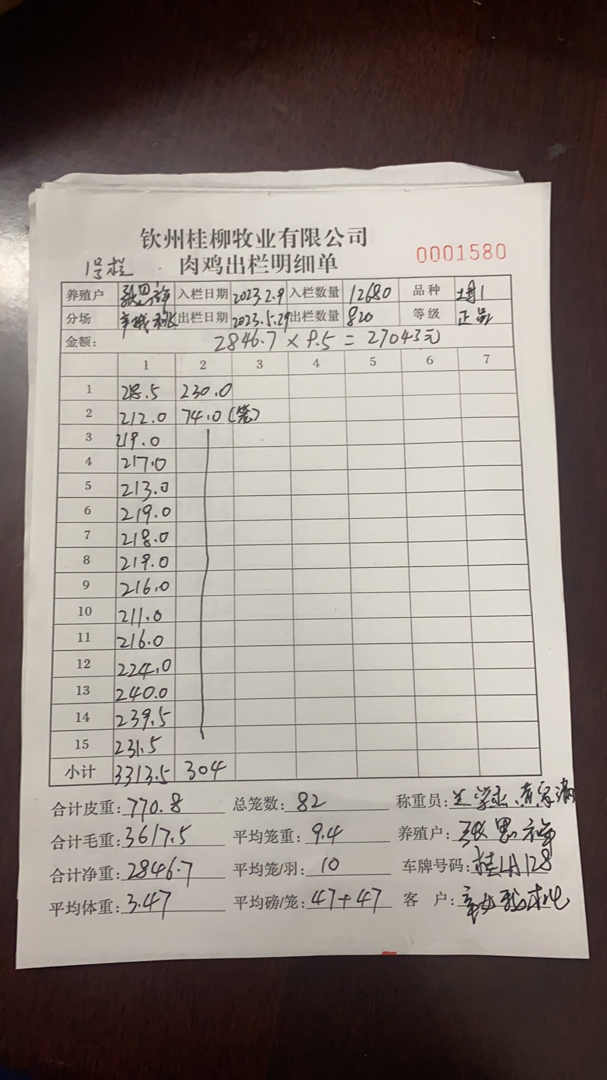 钦州桂柳牧业有限公司
0001580
1号栏 肉鸡出栏明细单
养殖户 入栏日期 2023.2.9 入栏数量 12680 品种
分场 出栏日期 2023.5.29 出栏数量 820 等级 正品
金额: 2846.7 × 9.5 = 27043元
1 2 3 4 5 6 7
1 218.5 230.0
2 212.0 74.0 (笼)
3 219.0
4 217.0
5 213.0
6 219.0
7 218.0
8 219.0
9 216.0
10 211.0
11 216.0
12 224.0
13 240.0
14 239.5
15 231.5
小计 3313.5 304
合计皮重: 770.8 总笼数: 82 称重员:
合计毛重: 3617.5 平均笼重: 9.4 养殖户:
合计净重: 2846.7 平均笼/羽: 10 车牌号码:
平均体重: 3.47 平均磅/笼: 47+47 客 户: